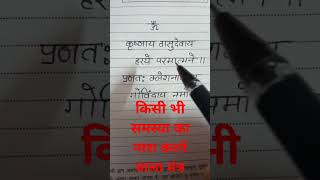 ॐ
कृष्णाय वासुदेवाय
हरये परमात्मने।।
प्रणतः
गोविंदाय नमो
किसी भी
समस्या का
नाश करने
वाला मंत्र